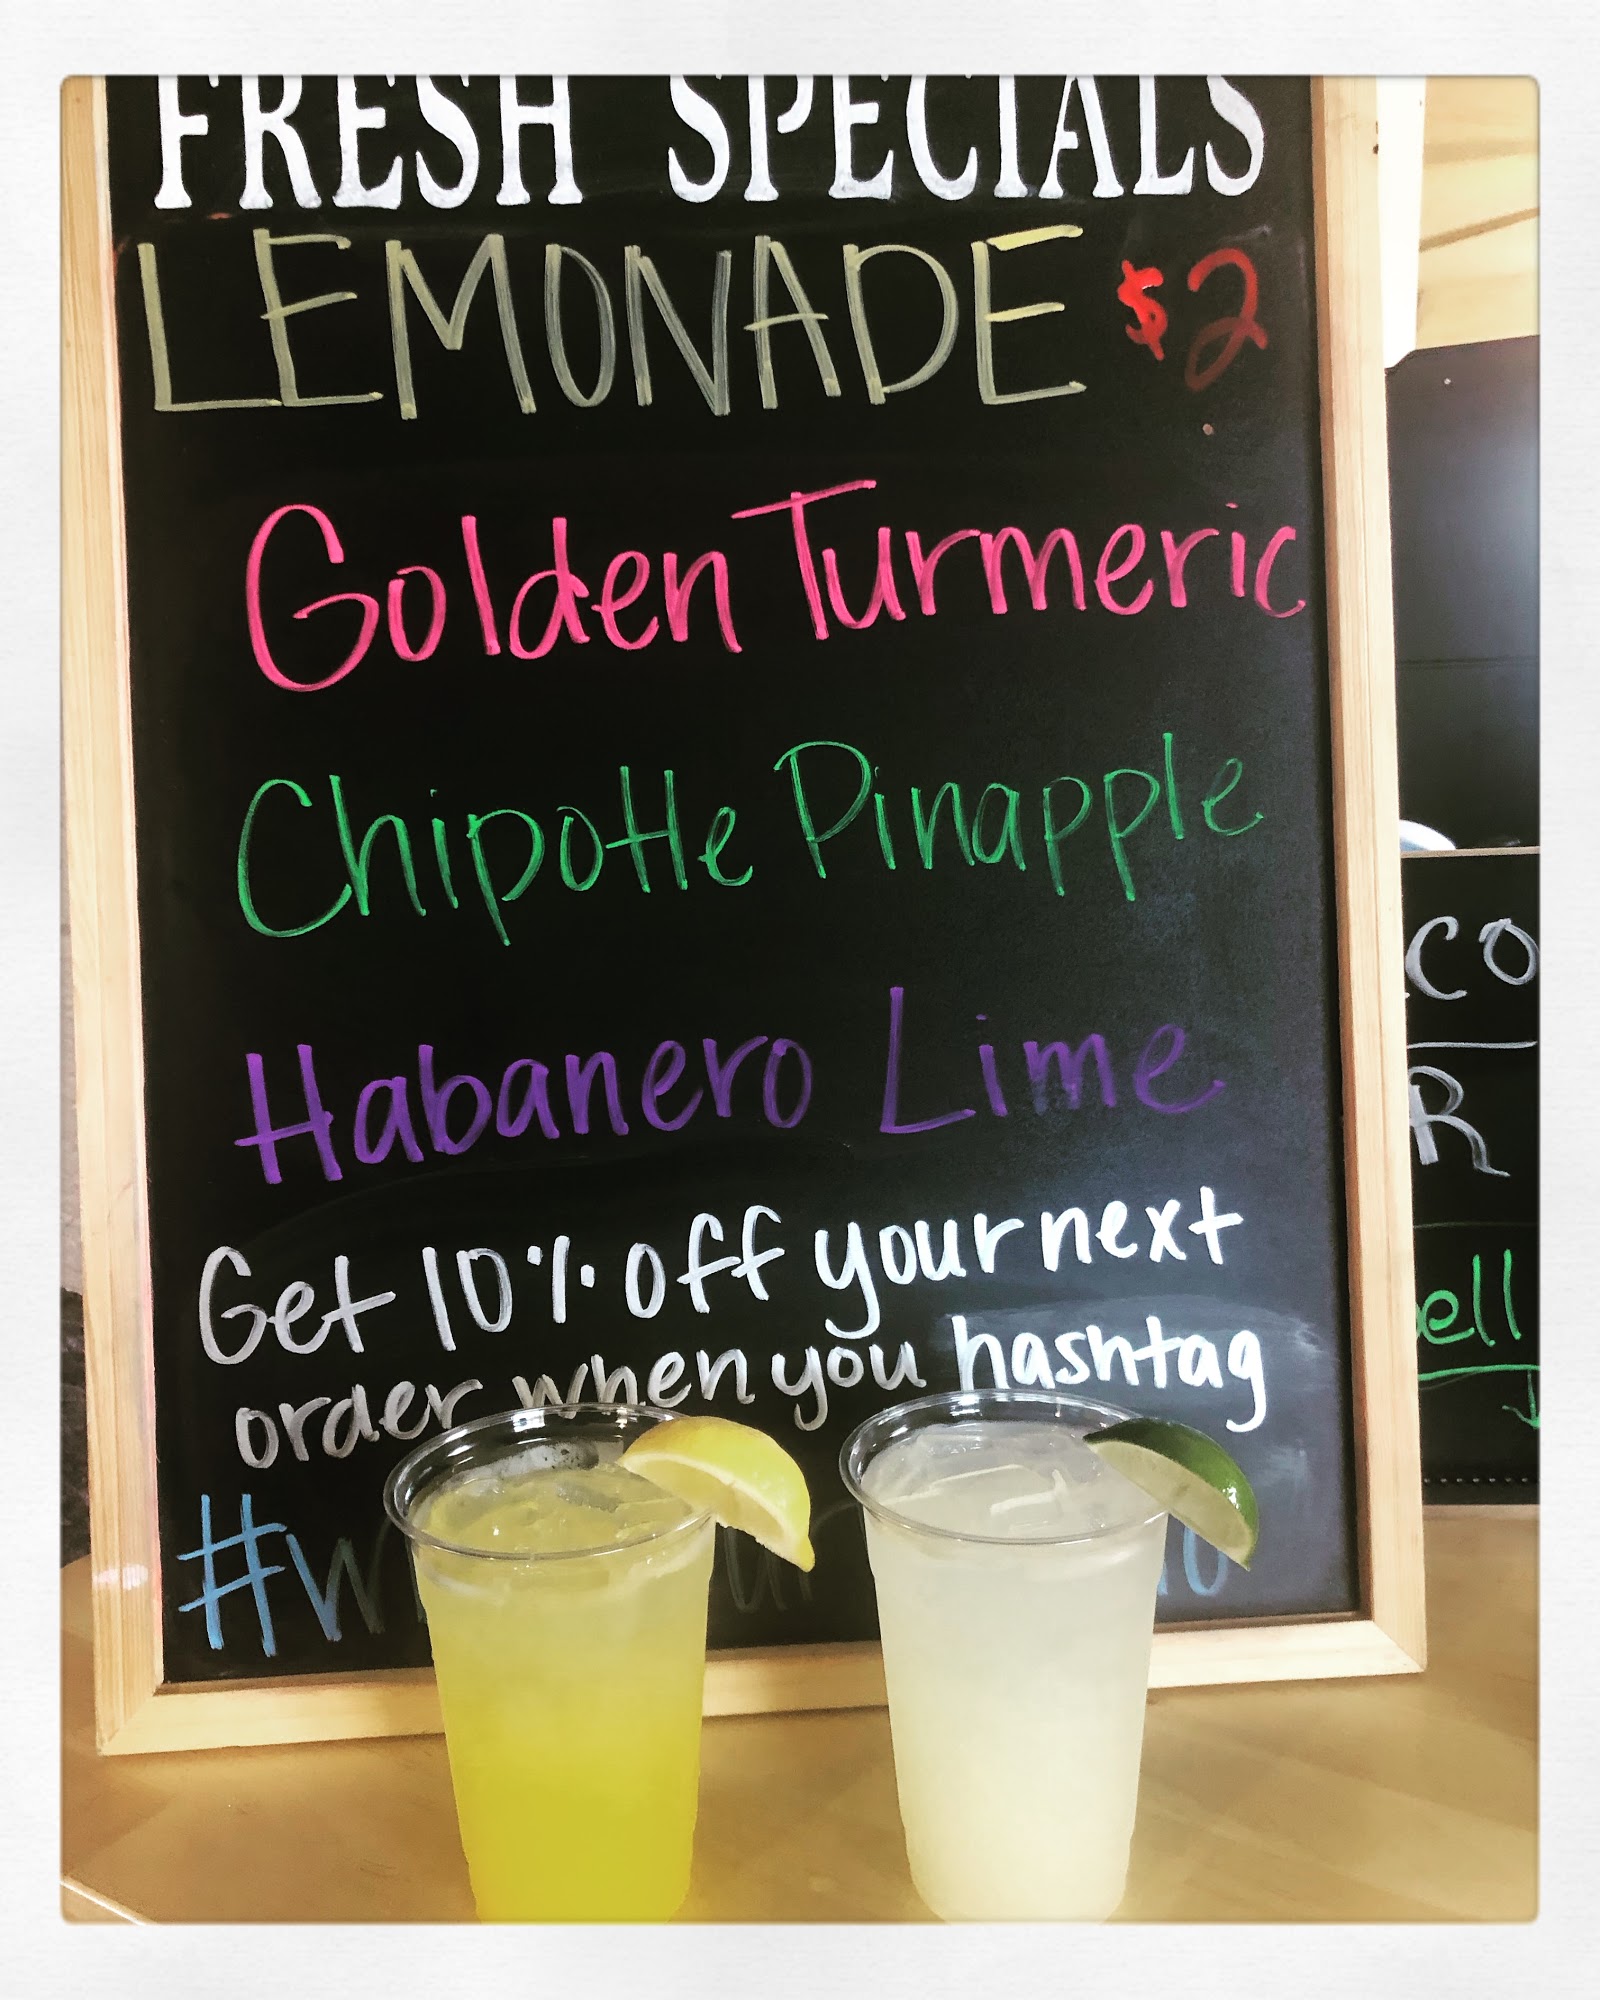 FRESH SPECIALS
LEMONADE $2
Golden Turmeric
Chipotle Pinapple
Habanero Lime
Get 10% off your next
order when you hashtag
CO
R
ell